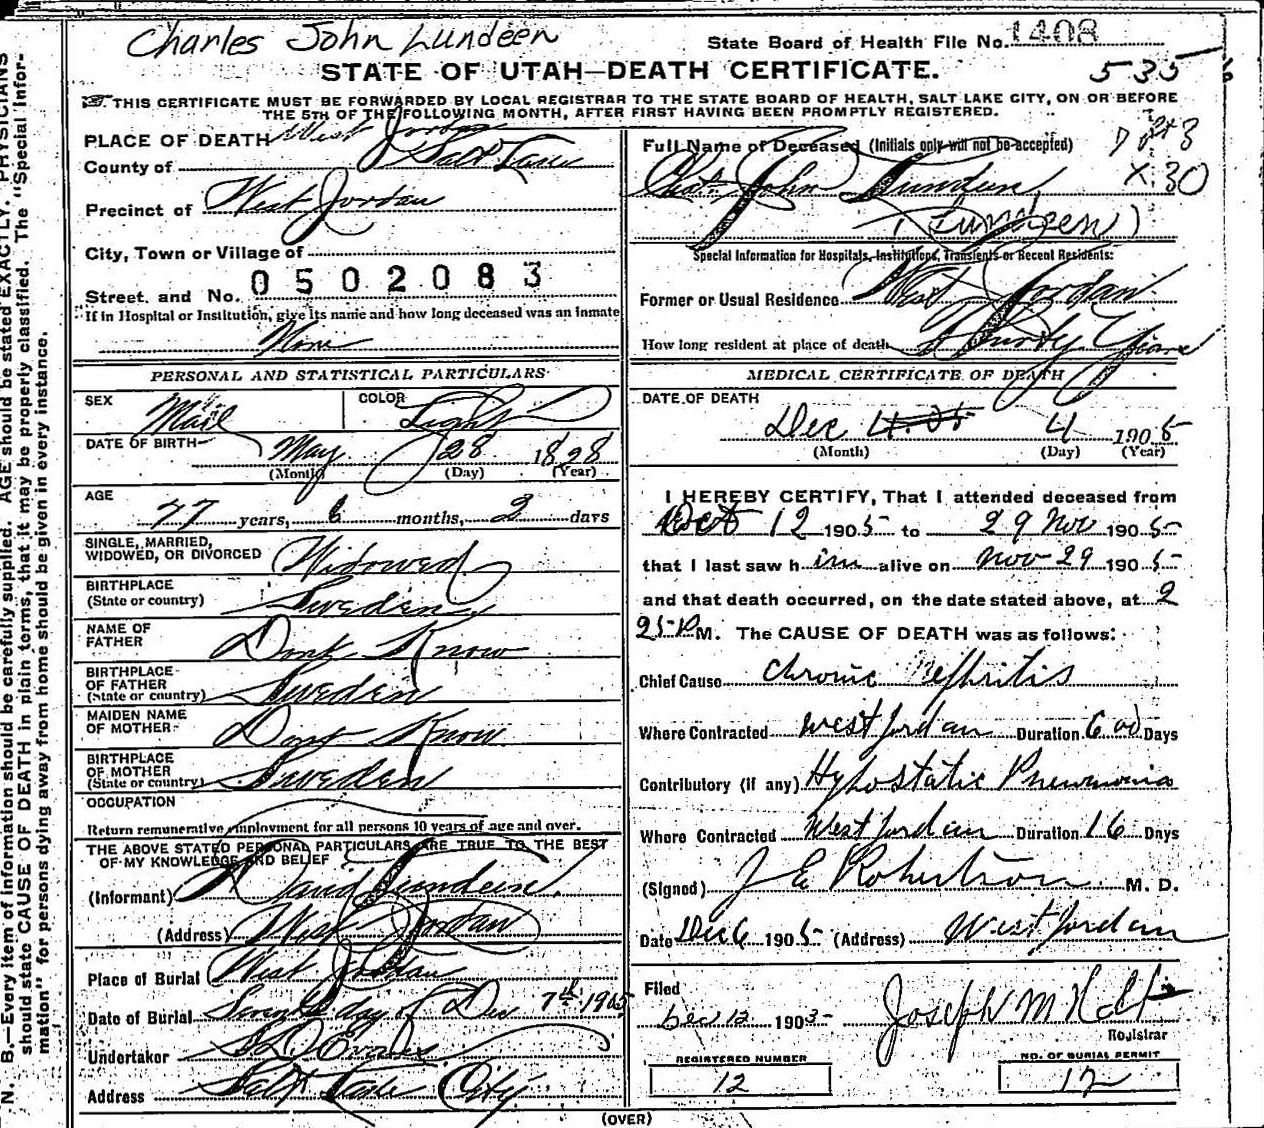 Charles John Lundeen
State Board of Health File No. 1408
STATE OF UTAH—DEATH CERTIFICATE.
535
THIS CERTIFICATE MUST BE FORWARDED BY LOCAL REGISTRAR TO THE STATE BOARD OF HEALTH, SALT LAKE CITY, ON OR BEFORE
THE 5TH OF THE FOLLOWING MONTH, AFTER FIRST HAVING BEEN PROMPTLY REGISTERED.
PLACE OF DEATH West Jordan
County of Salt Lake
Precinct of West Jordan
City, Town or Village of
0502083
Street. and No.
If in Hospital or Institution, give its name and how long deceased was an inmate
None
Full Name of Deceased (Initials only will not be accepted)
John Lundeen
X.30
(Lundeen)
Special Information for Hospitals, Institutions, Transients or Recent Residents:
Former or Usual Residence West Jordan
How long resident at place of death Thirty Years
PERSONAL AND STATISTICAL PARTICULARS
SEX Male COLOR Light
DATE OF BIRTH May 28 1828
(Month) (Day) (Year)
AGE
77 years, 6 months, 2 days
SINGLE, MARRIED,
WIDOWED, OR DIVORCED Widowed
BIRTHPLACE
(State or country) Sweden
NAME OF
FATHER Dont Know
BIRTHPLACE
OF FATHER
(State or country) Sweden
MAIDEN NAME
OF MOTHER Dont Know
BIRTHPLACE
OF MOTHER
(State or country) Sweden
OCCUPATION
Return remunerative employment for all persons 10 years of age and over.
THE ABOVE STATED PERSONAL PARTICULARS ARE TRUE TO THE BEST
OF MY KNOWLEDGE AND BELIEF
(Informant) David Lundeen
(Address) West Jordan
Place of Burial West Jordan
Date of Burial day of Dec 7th 1905
Undertaker
Address Salt Lake City
MEDICAL CERTIFICATE OF DEATH
DATE OF DEATH
Dec 4 1905
(Month) (Day) (Year)
I HEREBY CERTIFY, That I attended deceased from
Oct 12 1905 to 29 Nov 1905
that I last saw him alive on Nov 29 1905
and that death occurred, on the date stated above, at 2
25 P M. The CAUSE OF DEATH was as follows:
Chief Cause Chronic Nephritis
Where Contracted West Jordan Duration 600 Days
Contributory (if any) Hypostatic Pneumonia
Where Contracted West Jordan Duration 16 Days
(Signed) J E Robertson M. D.
Date Dec 6 1905 (Address) West Jordan
Filed
Dec 12 1905 Joseph M Holt
Registrar
REGISTERED NUMBER
12
NO. OF BURIAL PERMIT
12
(OVER)
N. B.—Every item of information should be carefully supplied. AGE should be stated EXACTLY. PHYSICIANS
should state CAUSE OF DEATH in plain terms, that it may be properly classified. The "Special Infor-
mation" for persons dying away from home should be given in every instance.